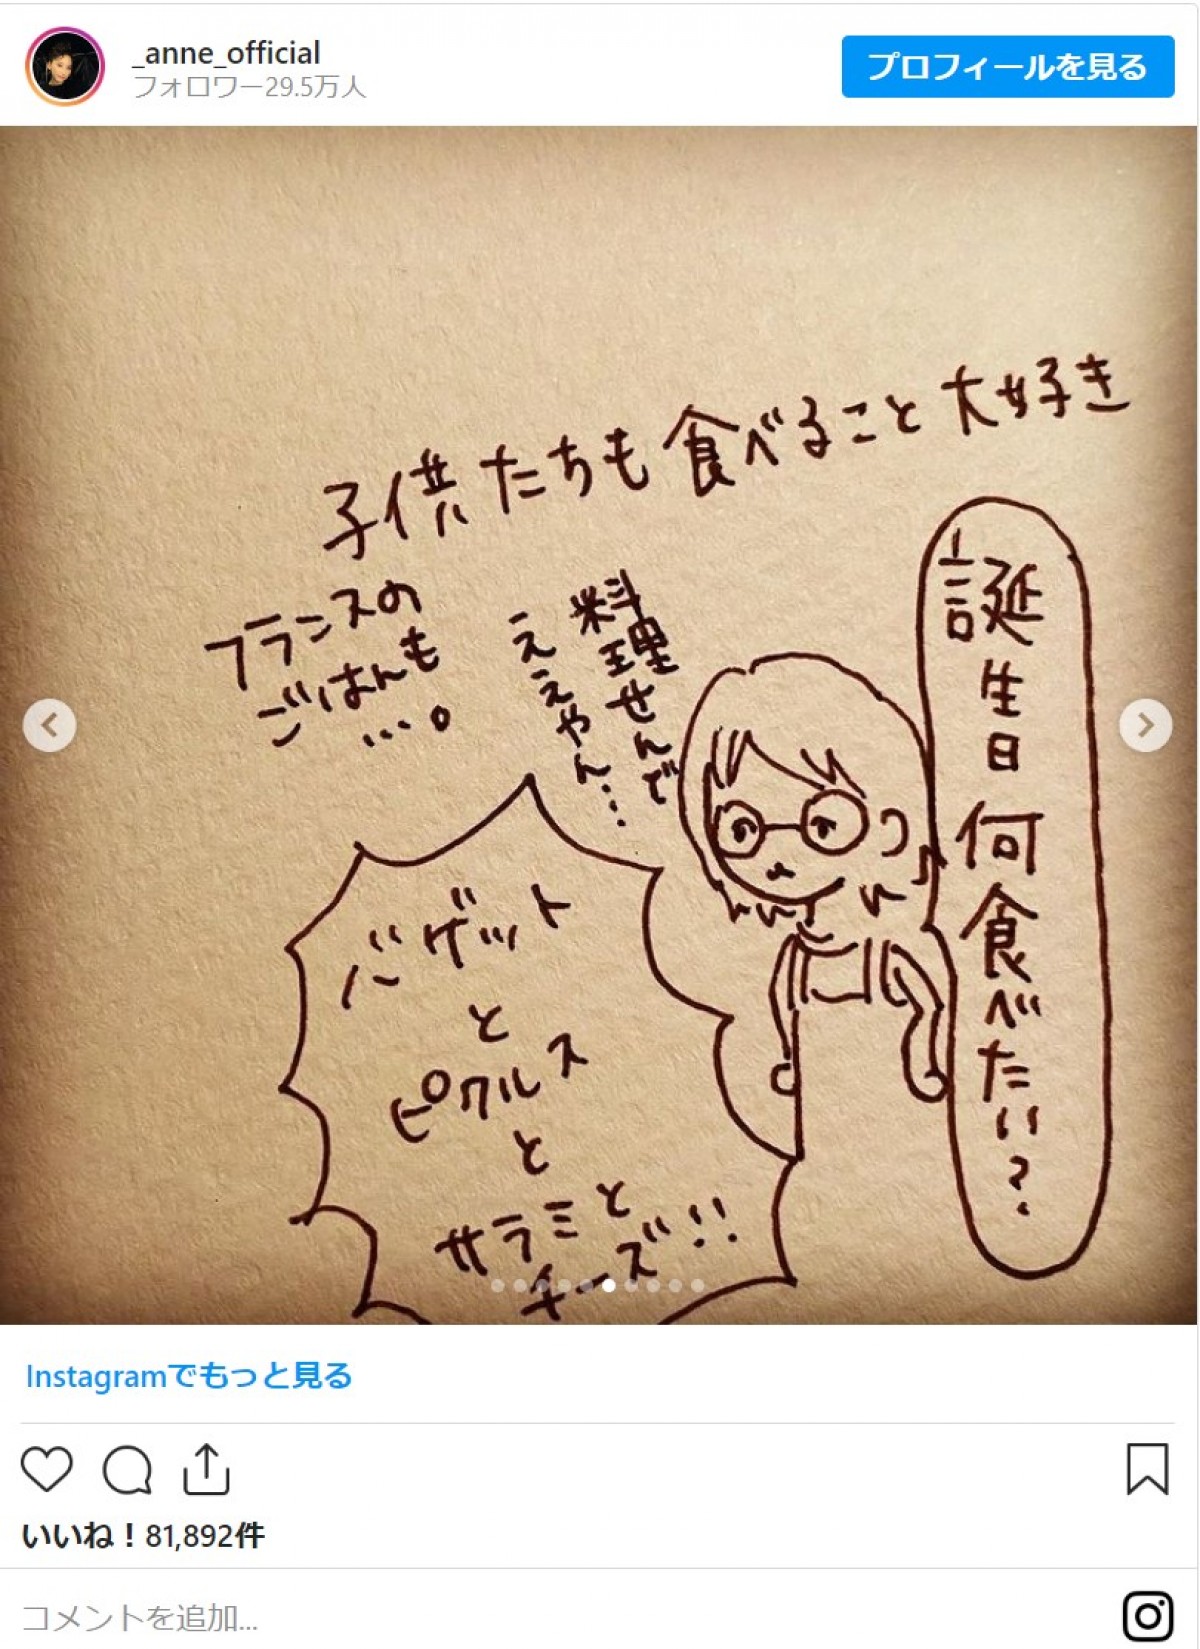 _anne_official
フォロワー29.5万人
プロフィールを見る
子供たちも食べること大好き
フランスの
ごはんも
…。
誕生日何食べたい?
料理せんで
ええやん…
バゲット
と
ピクルス
と
サラミと
チーズ!!
Instagramでもっと見る
いいね！81,892件
コメントを追加...